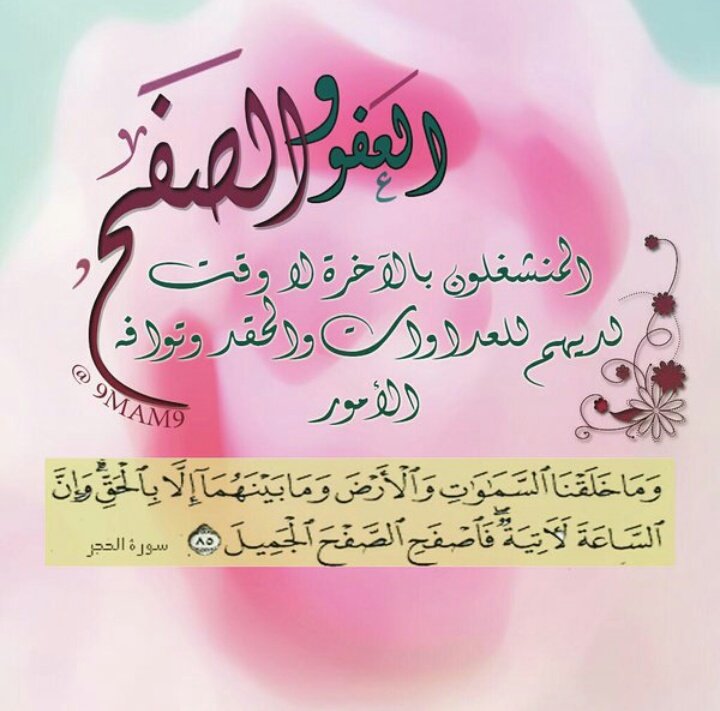 العفو والصفح
المنشغلون بالآخرة لا وقت
لديهم للعداوات والحقد وتوافه
الأمور
@ 9MAM9
وَمَا خَلَقْنَا ٱلسَّمَٰوَٰتِ وَٱلْأَرْضَ وَمَا بَيْنَهُمَآ إِلَّا بِٱلْحَقِّ ۗ وَإِنَّ
ٱلسَّاعَةَ لَآتِيَةٌ ۖ فَٱصْفَحِ ٱلصَّفْحَ ٱلْجَمِيلَ ٨٥ سورة الحجر